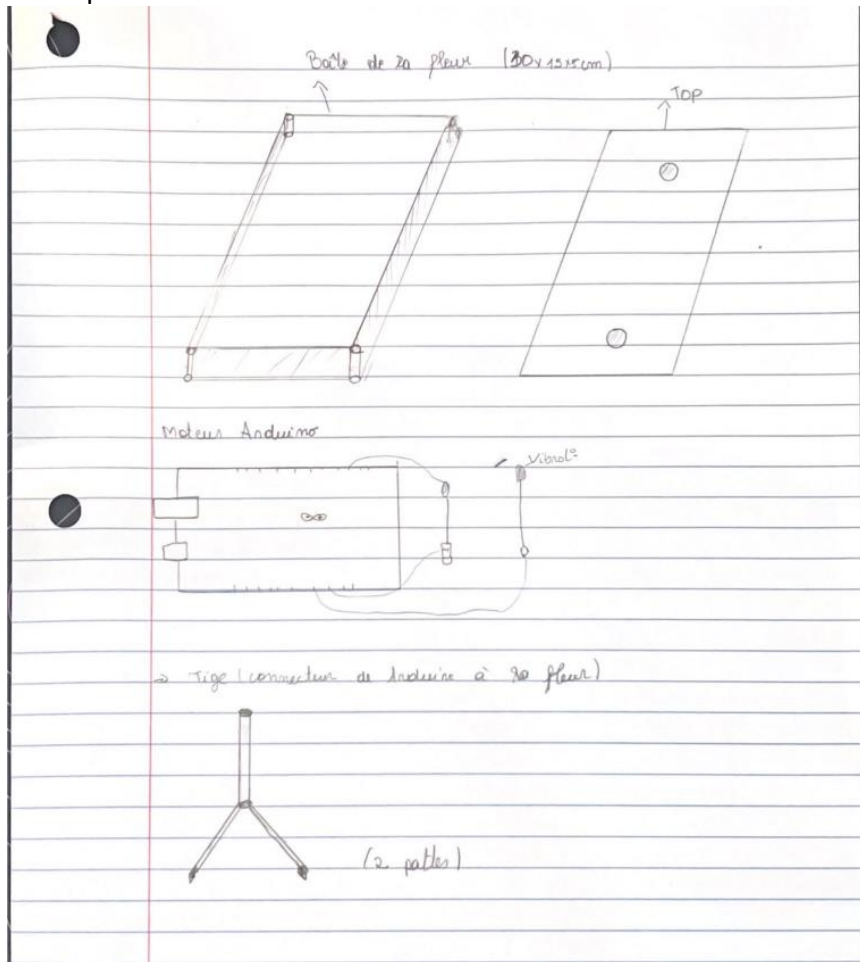 Boîte de la fleur (30x15x5cm)
TOP
Moteur Arduino
Vibrat°
→ Tige (connecteur de Arduino à la fleur)
(2 pattes)